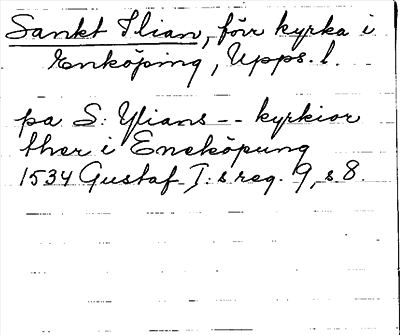 Sankt Ilian, förr kyrka i
Enköping, Upps. l.
pa S: Ylians -- kyrkior
ther i Eneköpung
1534 Gustaf I:s reg. 9, s 8.